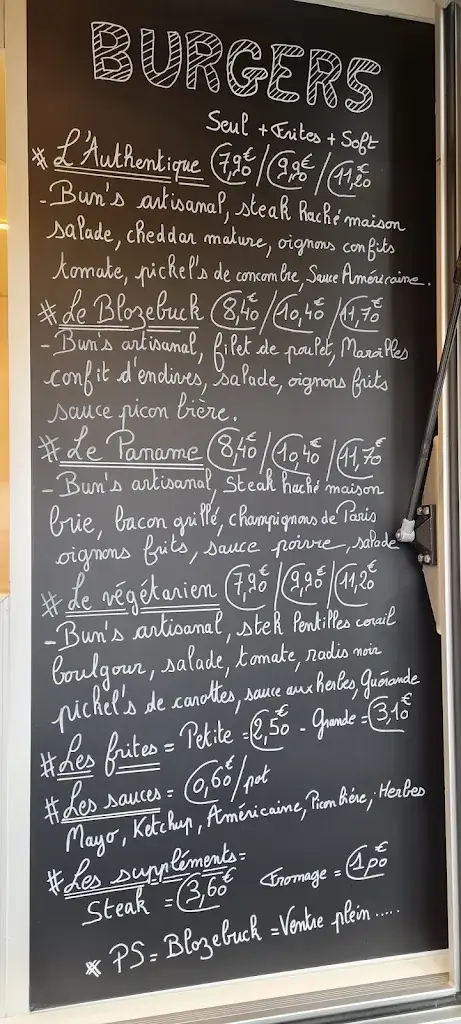 BURGERS
Seul + Frites + Soft
# L'Authentique 7,90€ / 9,90€ / 11,20€
- Bun's artisanal, steak haché maison
salade, cheddar mature, oignons confits
tomate, pickel's de concombre, Sauce Américaine.
# Le Blozebuck 8,40€ / 10,40€ / 11,70€
- Bun's artisanal, filet de poulet, Maroilles
confit d'endives, salade, oignons frits
sauce picon bière.
# Le Paname 8,40€ / 10,40€ / 11,70€
- Bun's artisanal, Steak haché maison
brie, bacon grillé, champignons de Paris
oignons frits, sauce poivre, salade
# Le végétarien 7,90€ / 9,90€ / 11,20€
- Bun's artisanal, stek lentilles corail
boulgour, salade, tomate, radis noir
pickel's de carottes, sauce aux herbes, Guérande
# Les frites = Petite = 2,50€ - Grande = 3,10€
# Les sauces = 0,60€ / pot
Mayo, Ketchup, Américaine, Picon bière, Herbes
# Les suppléments =
Steak = 3,60€ Fromage = 1,00€
* PS = Blozebuck = Ventre plein .....